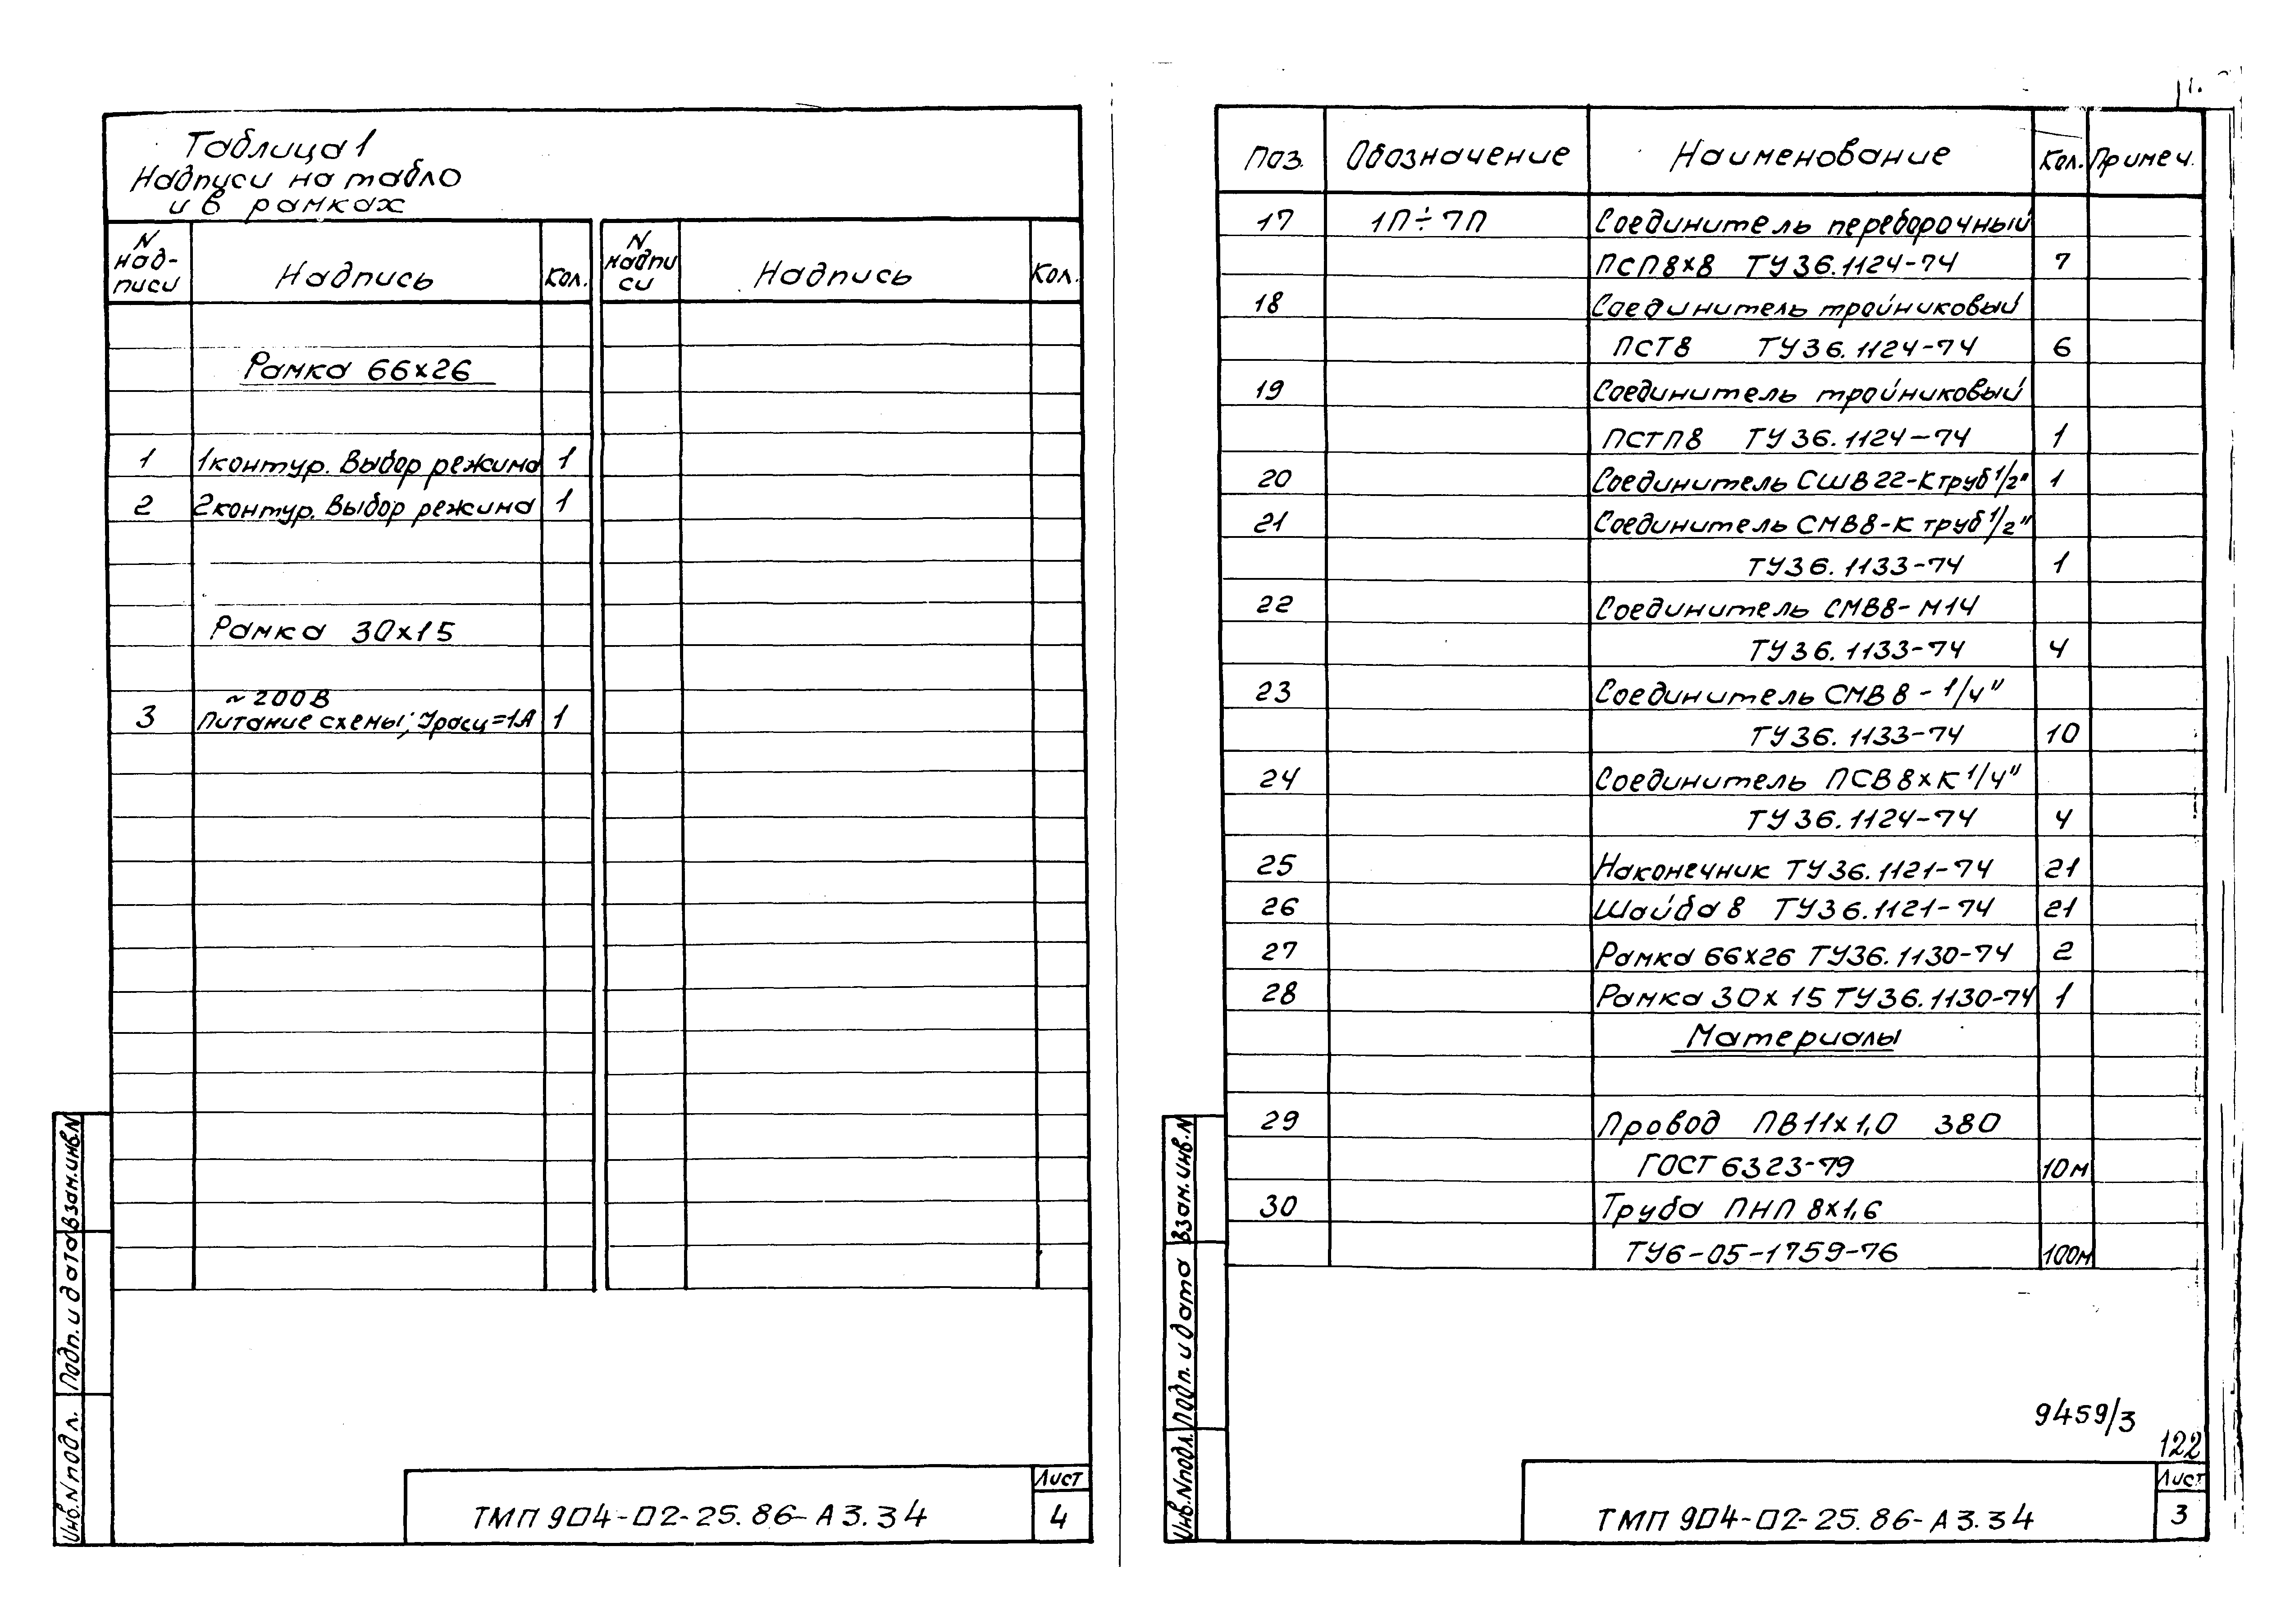 Таблица 1
Надписи на табло
и в рамках
N надписи Надпись Кол. N надписи Надпись Кол.
Рамка 66х26
1 1контур. Выбор режима 1
2 2контур. Выбор режима 1
Рамка 30х15
~200В
3 Питание схемы; Iрасц=1А 1
Взам.инв.N
Подп. и дата
Инв.N подл.
ТМП 904-02-25.86-А3.34
Лист
4
Поз. Обозначение Наименование Кол. Примеч.
17 1П÷7П Соединитель переборочный
ПСП8х8 ТУ36.1124-74 7
18 Соединитель тройниковый
ПСТ8 ТУ36.1124-74 6
19 Соединитель тройниковый
ПСТП8 ТУ36.1124-74 1
20 Соединитель СШВ22-К труб 1/2" 1
21 Соединитель СМВ8-К труб 1/2"
ТУ36.1133-74 1
22 Соединитель СМВ8-М14
ТУ36.1133-74 4
23 Соединитель СМВ8-1/4"
ТУ36.1133-74 10
24 Соединитель ПСВ8хК 1/4"
ТУ36.1124-74 4
25 Наконечник ТУ36.1121-74 21
26 Шайба 8 ТУ36.1121-74 21
27 Рамка 66х26 ТУ36.1130-74 2
28 Рамка 30х15 ТУ36.1130-74 1
Материалы
29 Провод ПВ1 1х1,0 380
ГОСТ 6323-79 10м
30 Труба ПНП 8х1,6
ТУ6-05-1759-76 100м
Взам.инв.N
Подп. и дата
Инв.N подл.
9459/3
122
ТМП 904-02-25.86-А3.34
Лист
3